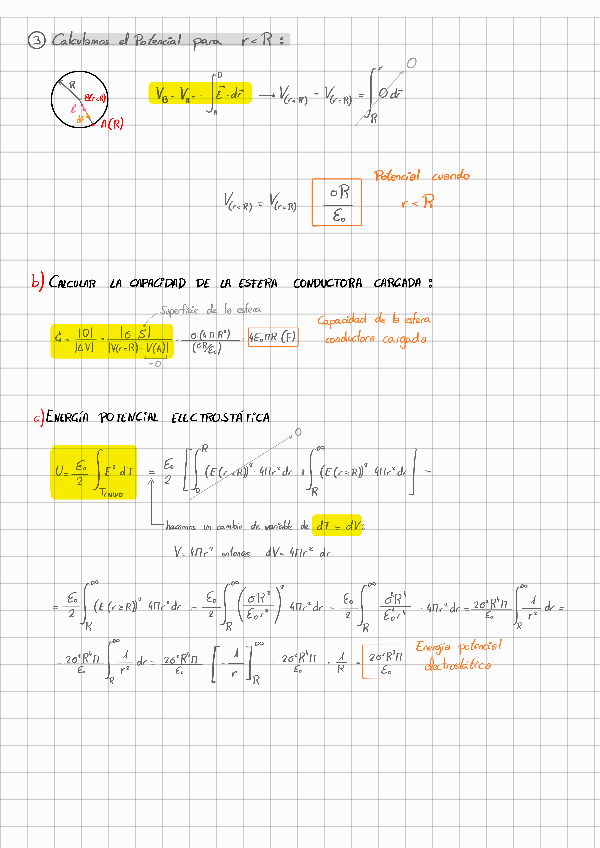 ③ Calculamos el Potencial para r < R :
R
B(r<R)
E⃗
dr⃗
A(R)
V_B - V_A = - ∫_A^B E⃗ · dr⃗ ⟶ V(r<R) - V(r=R) = ∫_R^r 0 dr⃗ 0
Potencial cuando
r < R
V(r<R) = V(r=R) σR/ε₀
b) CALCULAR LA CAPACIDAD DE LA ESFERA CONDUCTORA CARGADA :
Superficie de la esfera
C = |Q|/|ΔV| = |σ·S|/|V(r=R) - V(A)| = σ·(4πR²)/(σR/ε₀) = 4ε₀πR (F)
=0
Capacidad de la esfera
conductora cargada
c) ENERGÍA POTENCIAL ELECTROSTÁTICA
U = ε₀/2 ∫ E² dT = ε₀/2 [ ∫_0^R (E(r<R))² · 4πr² dr 0 + ∫_R^∞ (E(r≥R))² · 4πr² dr ] =
hacemos un cambio de variable de dT = dV:
V = 4πr² entonces dV = 4πr² dr
= ε₀/2 ∫_R^∞ (E(r≥R))² 4πr² dr = ε₀/2 ∫_R^∞ (σR²/ε₀r²)² 4πr² dr = ε₀/2 ∫_R^∞ σ²R⁴/ε₀²r⁴ · 4πr² dr = 2σ²R⁴π/ε₀ ∫_R^∞ 1/r² dr =
= 2σ²R⁴π/ε₀ ∫_R^∞ 1/r² dr = 2σ²R⁴π/ε₀ [ - 1/r ]_R^∞ = 2σ²R⁴π/ε₀ · 1/R = 2σ²R³π/ε₀
Energía potencial
electrostática